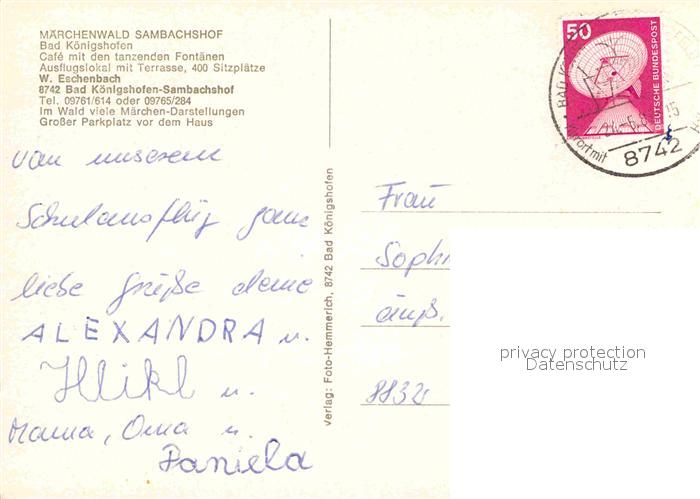 MÄRCHENWALD SAMBACHSHOF
Bad Königshofen
Café mit den tanzenden Fontänen
Ausflugslokal mit Terrasse, 400 Sitzplätze
W. Eschenbach
8742 Bad Königshofen-Sambachshof
Tel. 09761/614 oder 09765/284
Im Wald viele Märchen-Darstellungen
Großer Parkplatz vor dem Haus
von unserem
Schulausflug ganz
liebe Grüße deine
ALEXANDRA u.
u.
Mama, Oma u.
Daniela
Verlag: Foto-Hemmerich, 8742 Bad Königshofen
50
DEUTSCHE BUNDESPOST
BAD K
8742
Frau
Soph
äuß.
8832
privacy protection
Datenschutz